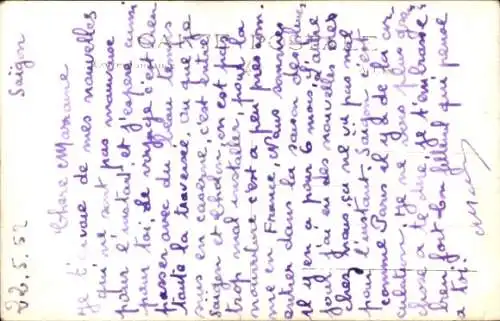 Saïgon
22.5.52
Chere Marraine
je t'envoie de mes nouvelles
qui ne sont pas mauvaise
pour l'instant et j'espere aussi
pour toi, le voyage c'est bien
passer avec du beau temps
toute la traverse, ou que je
suis en caserne, c'est entre
Saïgon et cholon, on est pas
trop mal installer, pour la
nourriture c'est a peu pres com
me en France, Nous sommes
entrer dans la saison des pluies
il y en a pour 6 mois, d'autre
jour j'ai eu des nouvelles de
chez nous ça ne va pas mal
pour l'instant, Saigon c'est
comme Paris il y a de la cir-
culation, je ne vois plus gra
chose a te dire, je t'embrasse
bien fort ton filleul qui pense
a toi.